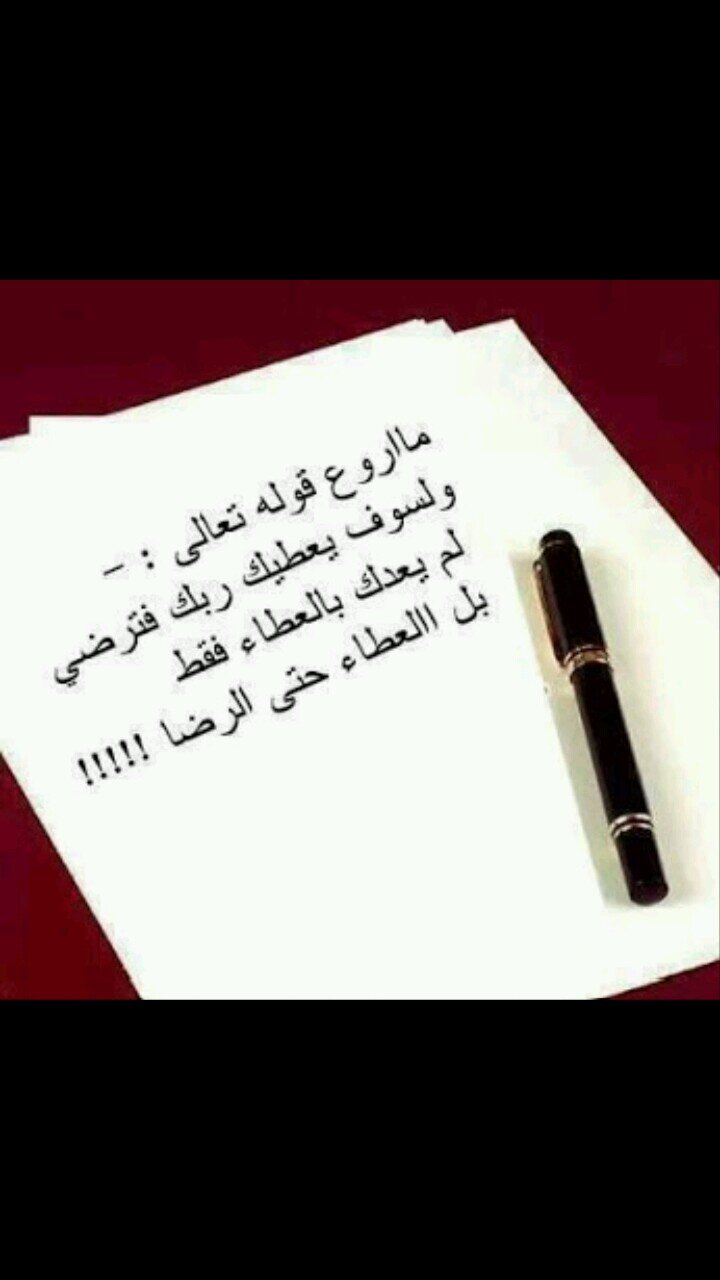 مااروع قوله تعالى : -
ولسوف يعطيك ربك فترضي
لم يعدك بالعطاء فقط
بل االعطاء حتى الرضا !!!!!